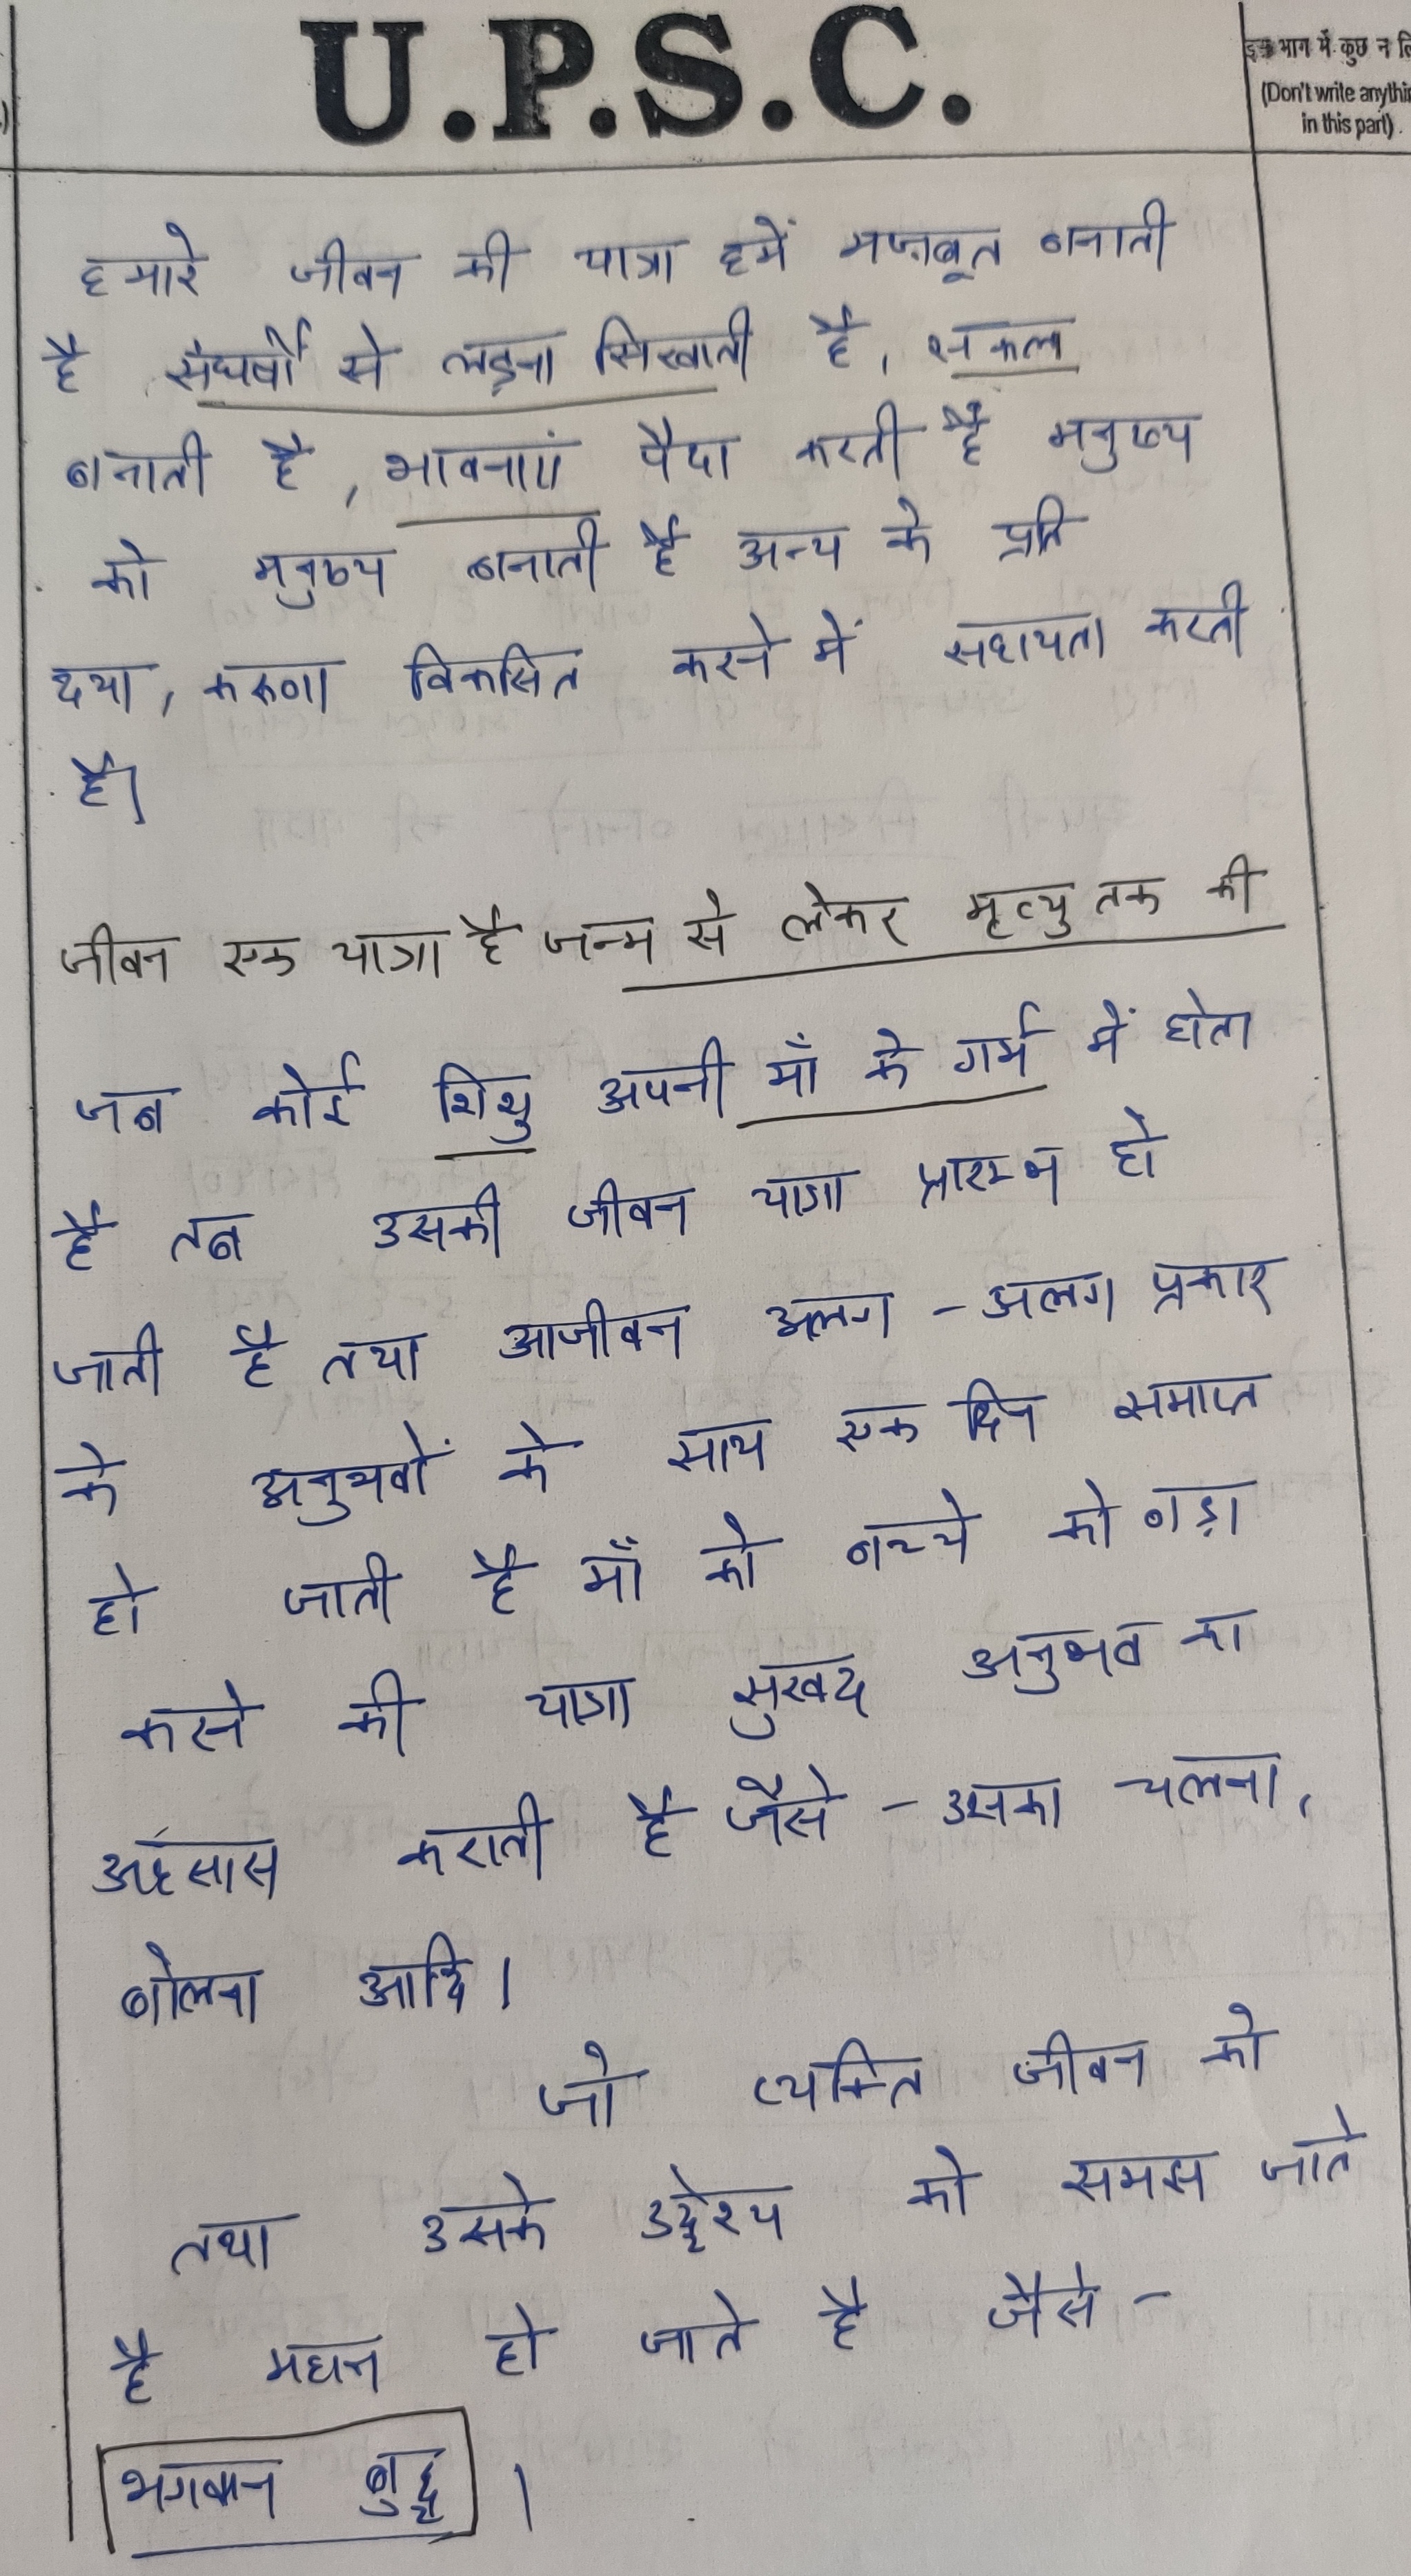 U.P.S.C.
इस भाग में कुछ न
(Don't write anythi
in this part)
हमारे जीवन की यात्रा हमें मजबूत बनाती
है संघर्षो से लड़ना सिखाती है, सकल
बनाती है, भावनाएं पैदा करती है मनुष्य
को मनुष्य बनाती है अन्य के प्रति
दया, करुणा विकसित करने में सहायता करती
है।
जीवन एक यात्रा है जन्म से लेकर मृत्यु तक की
जब कोई शिशु अपनी माँ के गर्भ में होता
है तब उसकी जीवन यात्रा प्रारम्भ हो
जाती है तथा आजीवन अलग - अलग प्रकार
के अनुभवों के साथ एक दिन समाप्त
हो जाती है माँ को बच्चे को बड़ा
करने की यात्रा सुखद अनुभव का
अहसास कराती है जैसे - उसका चलना,
बोलना आदि।
जो व्यक्ति जीवन को
तथा उसके उद्देश्य को समझ जाते
है महान हो जाते है जैसे -
भगवान बुद्ध ।